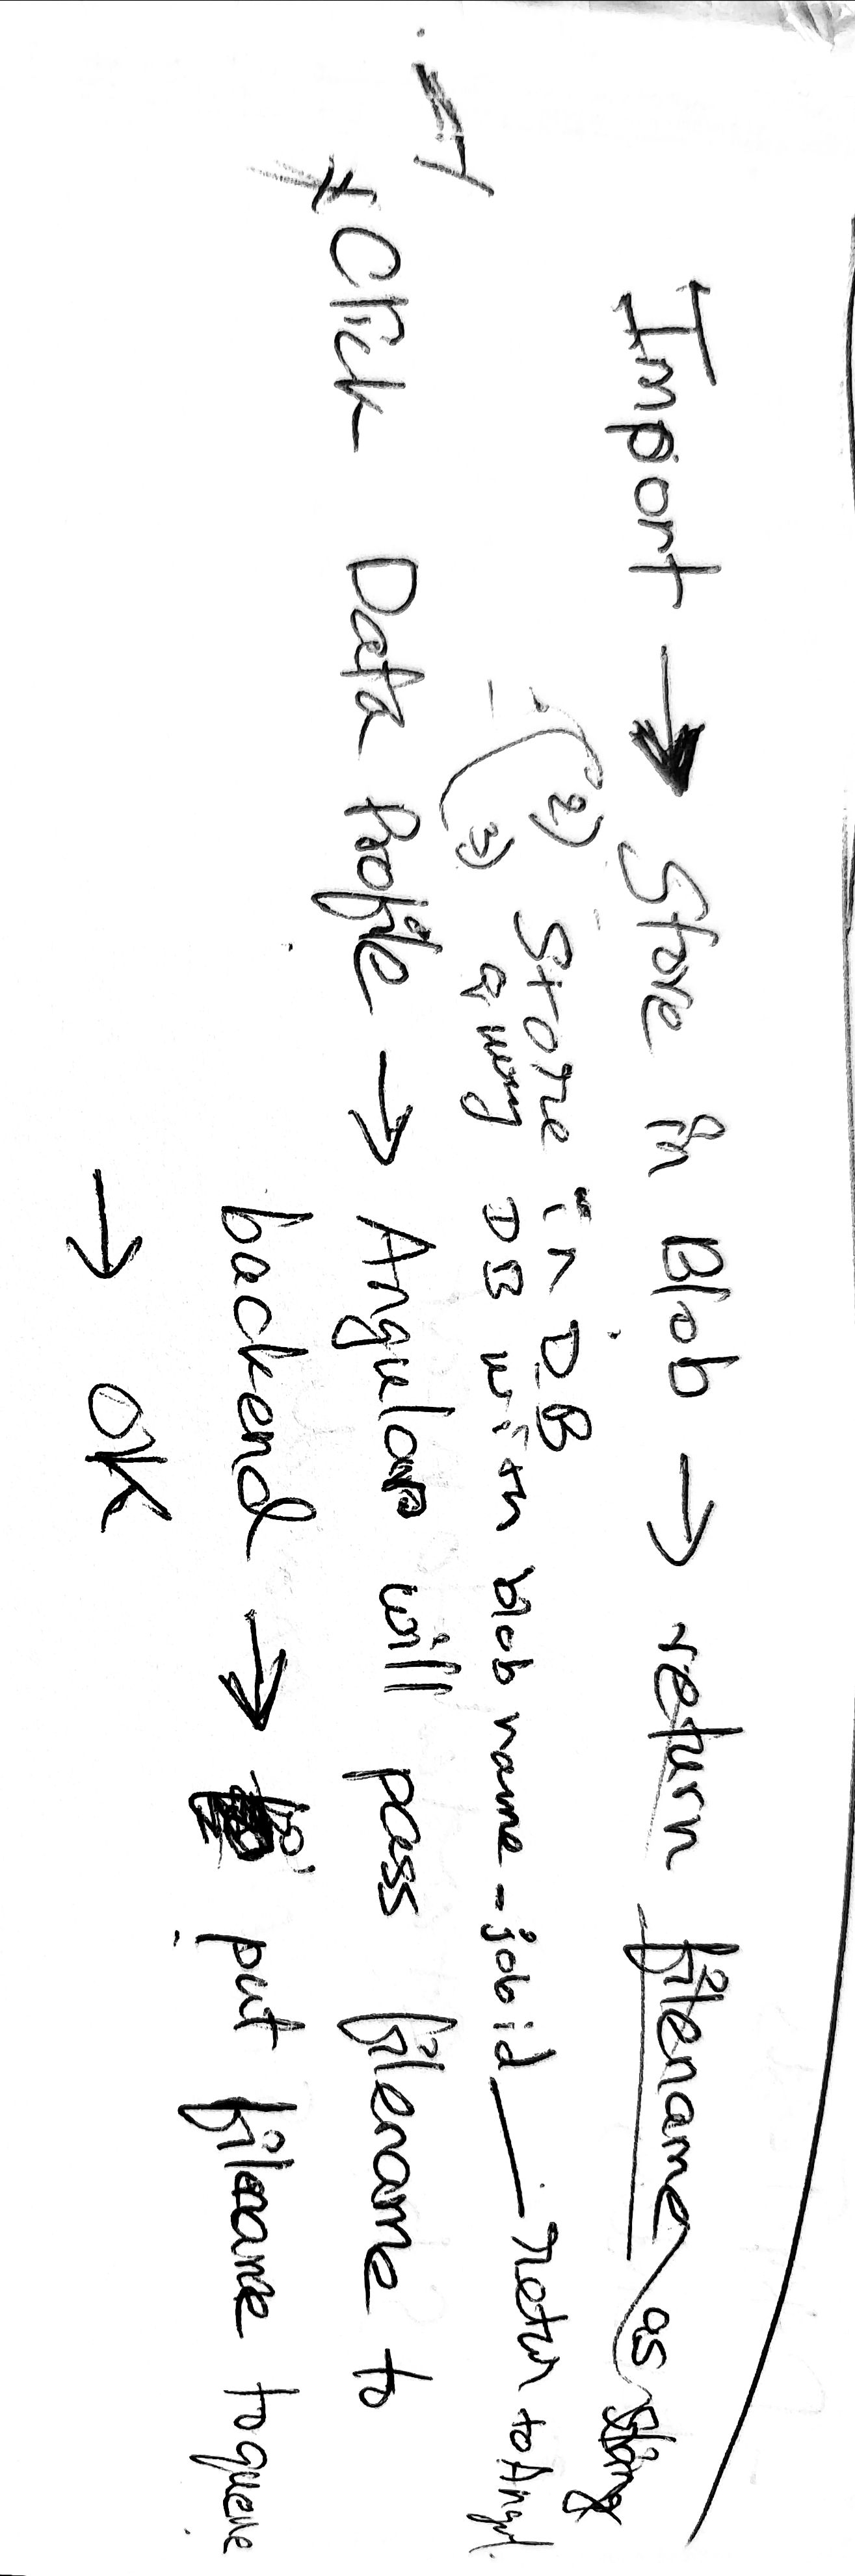 Import → Store in Blob → return filename as string
2) Store in DB
3) query DB with blob name - job id — return to Angul.
Click Data Profile → Angular will pass filename to
backend → put filename to queue
→ OK